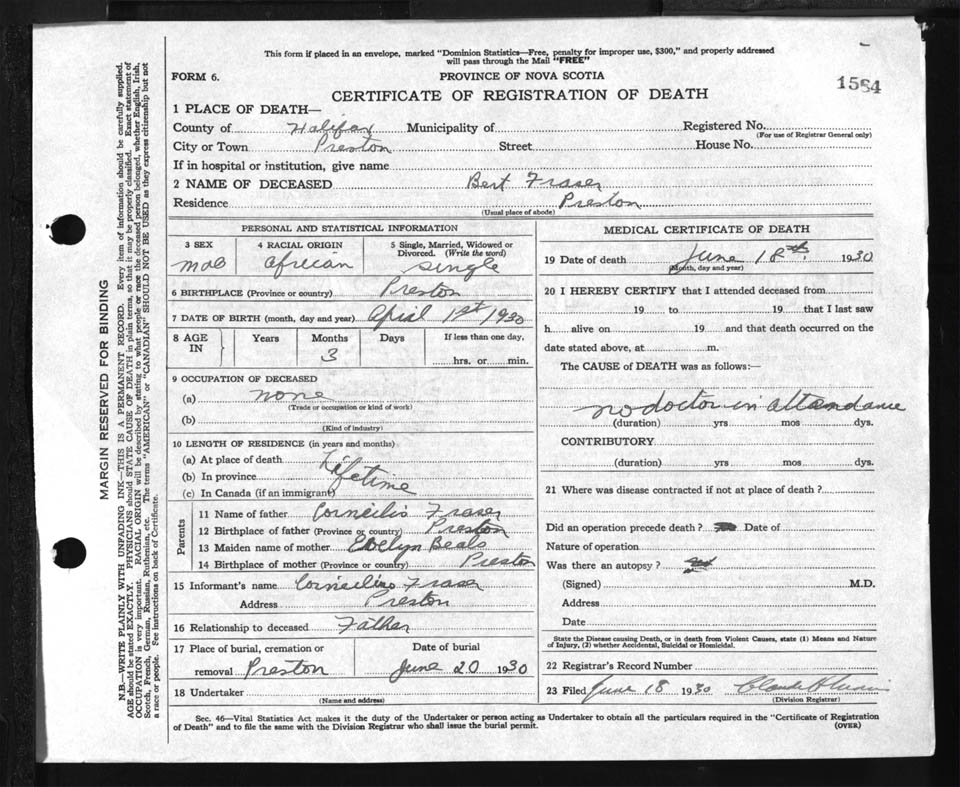 This form if placed in an envelope, marked "Dominion Statistics—Free, penalty for improper use, $300," and properly addressed
will pass through the Mail "FREE"
FORM 6.
PROVINCE OF NOVA SCOTIA
1564
CERTIFICATE OF REGISTRATION OF DEATH
1 PLACE OF DEATH—
County of Halifax Municipality of Registered No.
(For use of Registrar General only)
City or Town Preston Street House No.
If in hospital or institution, give name
2 NAME OF DECEASED Bert Fraser
Residence Preston
(Usual place of abode)
PERSONAL AND STATISTICAL INFORMATION
3 SEX 4 RACIAL ORIGIN 5 Single, Married, Widowed or
Divorced. (Write the word)
african single
6 BIRTHPLACE (Province or country) Preston
7 DATE OF BIRTH (month, day and year) April 1st 1930
8 AGE IN Years Months Days If less than one day,
3 hrs. or min.
9 OCCUPATION OF DECEASED
(a) none
(Trade or occupation or kind of work)
(b)
(Kind of industry)
10 LENGTH OF RESIDENCE (in years and months)
(a) At place of death
(b) In province Lifetime
(c) In Canada (if an immigrant)
Parents
11 Name of father Corneilis Fraser
12 Birthplace of father (Province or country) Preston
13 Maiden name of mother Evelyn Beals
14 Birthplace of mother (Province or country) Preston
15 Informant's name Corneilius Fraser
Address Preston
16 Relationship to deceased Father
17 Place of burial, cremation or Date of burial
removal Preston June 20 1930
18 Undertaker
(Name and address)
MEDICAL CERTIFICATE OF DEATH
19 Date of death June 18th. 1930
(Month, day and year)
20 I HEREBY CERTIFY that I attended deceased from
19 to 19 that I last saw
h alive on 19 and that death occurred on the
date stated above, at m.
The CAUSE of DEATH was as follows:—
no doctor in attendance
(duration) yrs mos dys.
CONTRIBUTORY
(duration) yrs mos dys.
21 Where was disease contracted if not at place of death ?
Did an operation precede death ? Date of
Nature of operation
Was there an autopsy ?
(Signed) M.D.
Address
Date
State the Disease causing Death, or in death from Violent Causes, state (1) Means and Nature
of Injury, (2) whether Accidental, Suicidal or Homicidal.
22 Registrar's Record Number
23 Filed June 18 1930
(Division Registrar)
Sec. 46—Vital Statistics Act makes it the duty of the Undertaker or person acting as Undertaker to obtain all the particulars required in the "Certificate of Registration
of Death" and to file the same with the Division Registrar who shall issue the burial permit. (OVER)
MARGIN RESERVED FOR BINDING
N.B.—WRITE PLAINLY WITH UNFADING INK—THIS IS A PERMANENT RECORD. Every item of information should be carefully supplied.
AGE should be stated EXACTLY. PHYSICIANS should STATE CAUSE OF DEATH in plain terms, so that it may be properly classified. Exact statement of
OCCUPATION is very important. RACIAL ORIGIN will be described by stating to what people or race the deceased person belonged, whether English, Irish,
Scotch, French, German, Russian, Ruthenian, etc. The terms "AMERICAN" or "CANADIAN" SHOULD NOT BE USED as they express citizenship but not
a race or people. See instructions on back of Certificate.